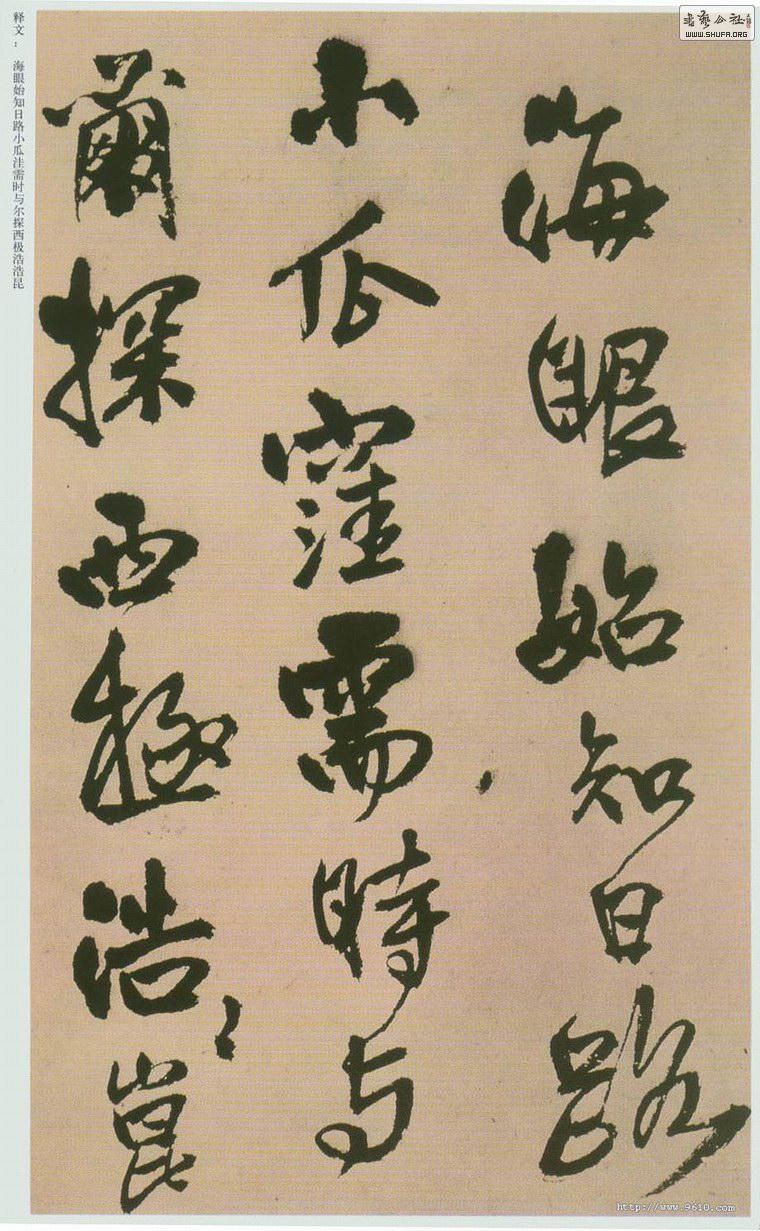 海眼始知日路
小瓜窪需時与
爾探西極浩〻崑
释文： 海眼始知日路小瓜洼需时与尔探西极浩浩昆
书艺公社
WWW.SHUFA.ORG
http://www.9610.com